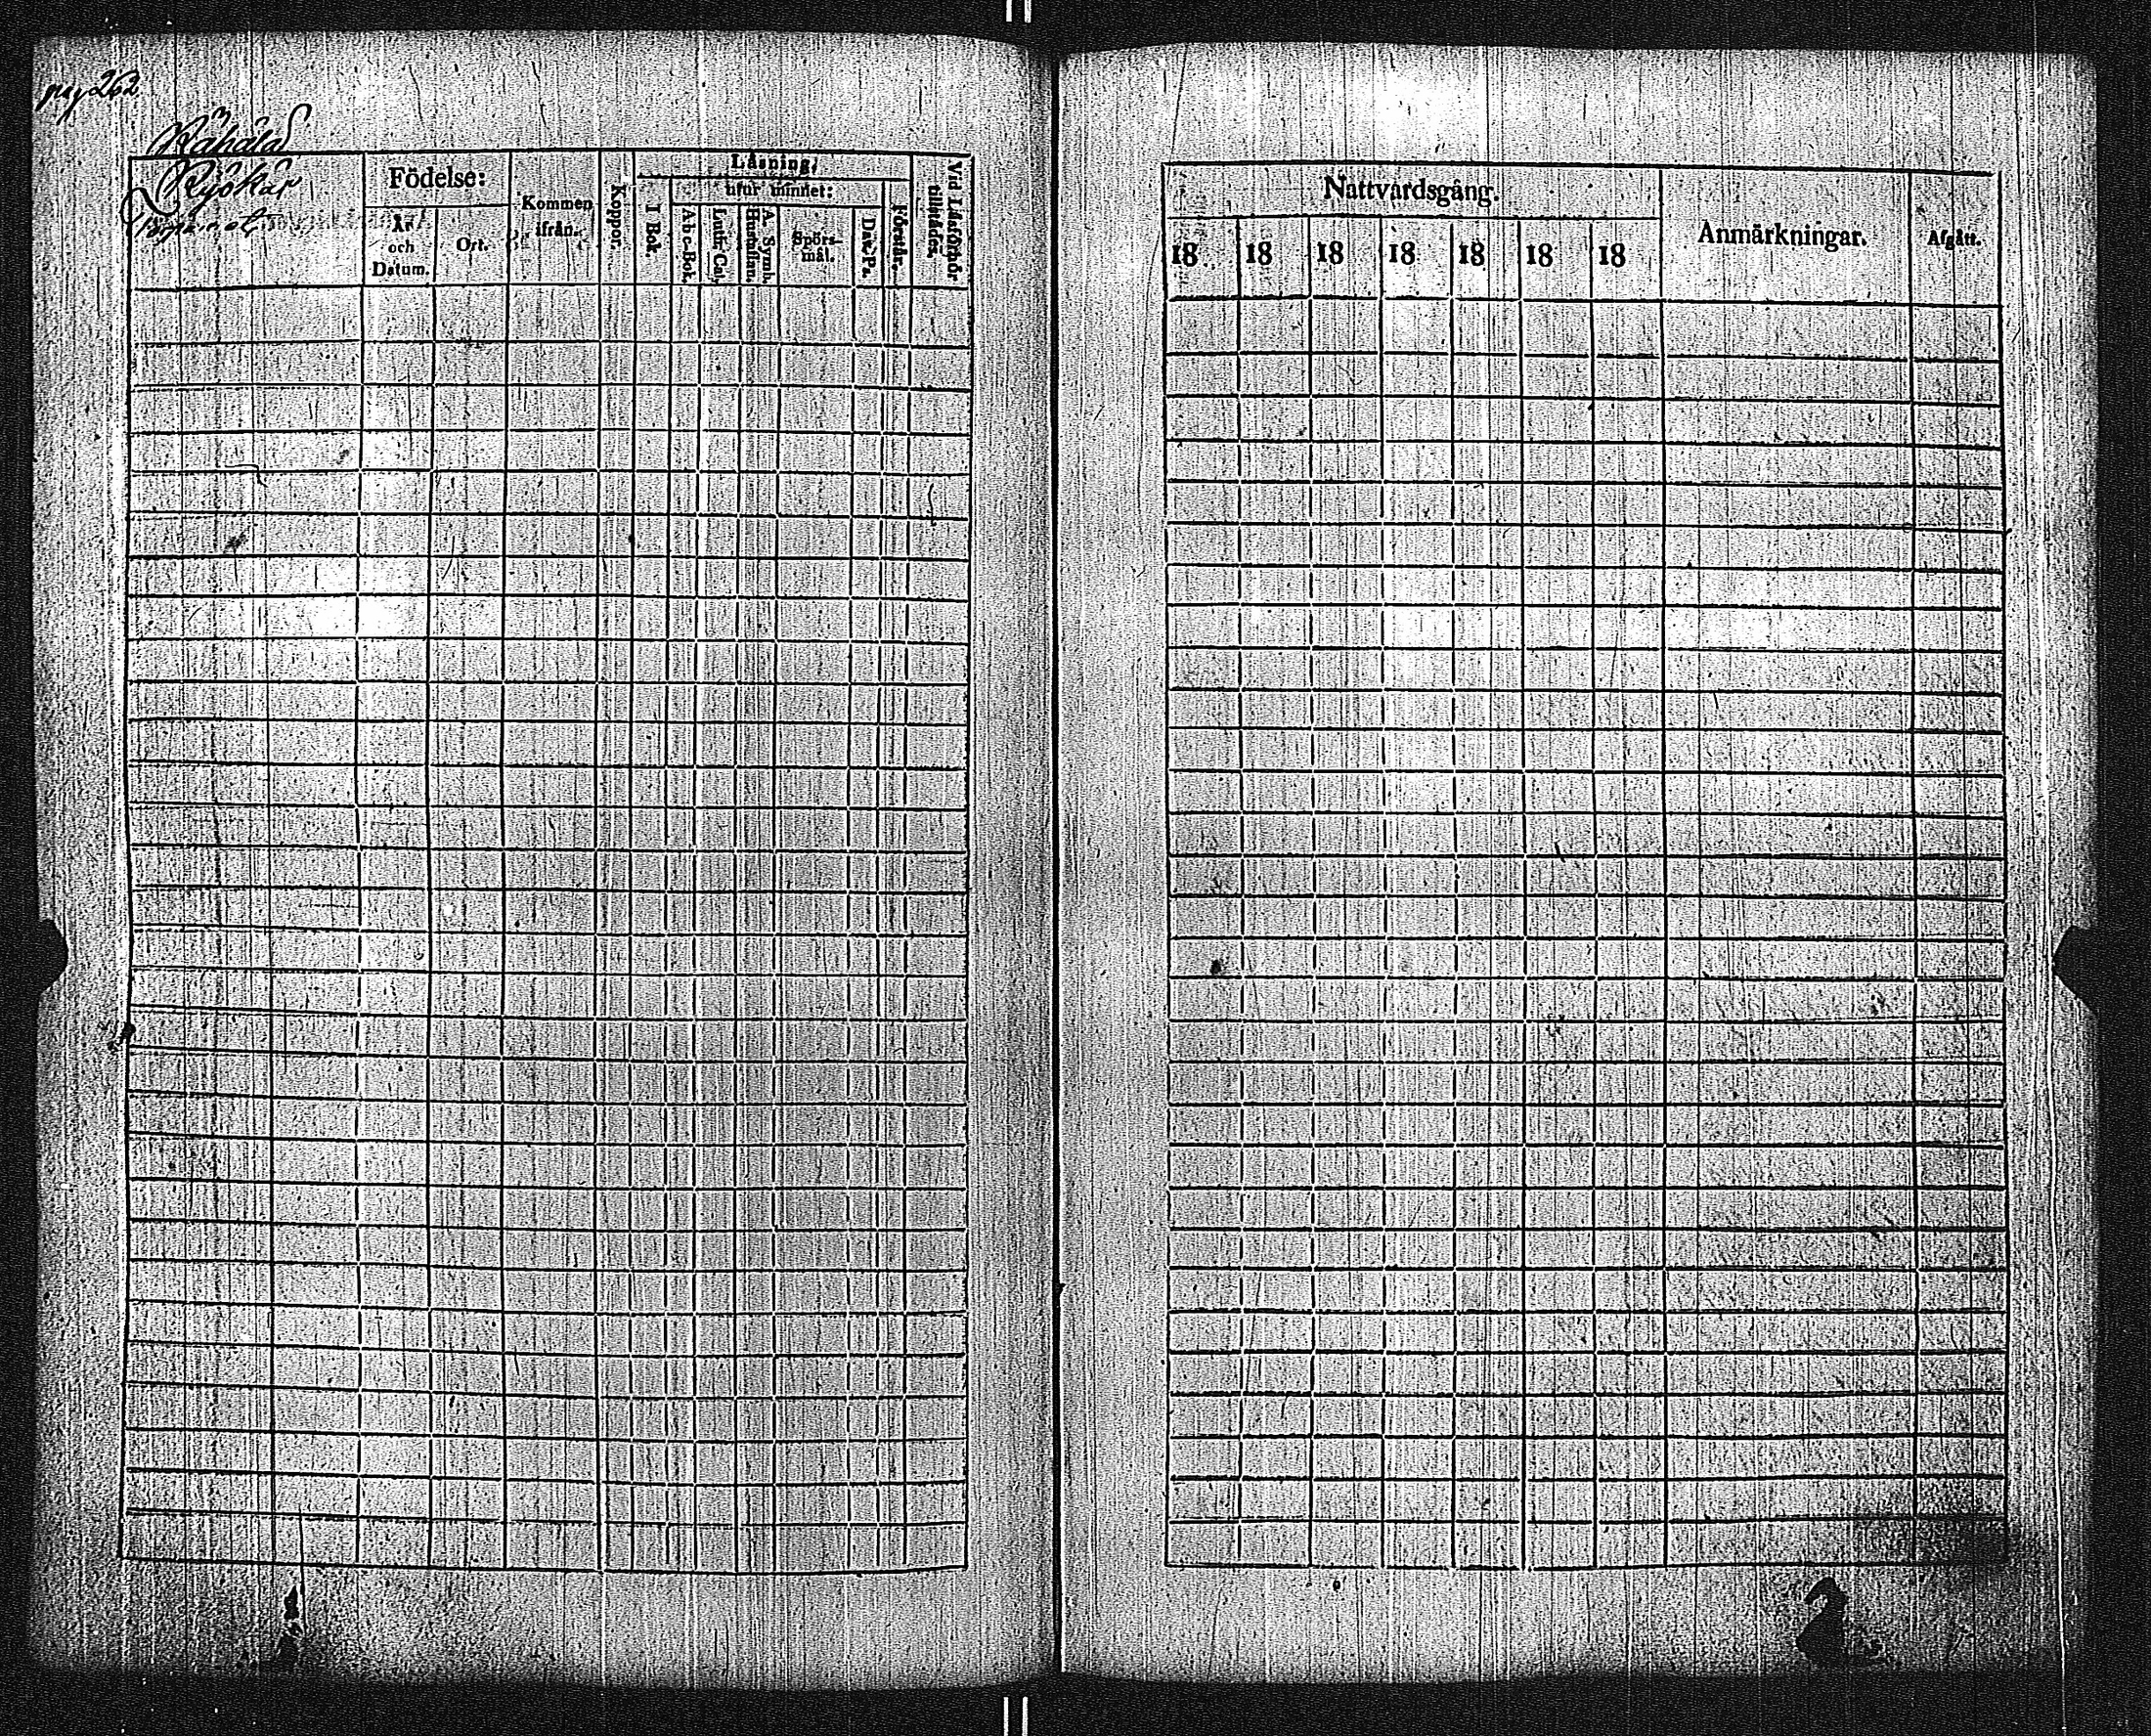 pag 262
Rähälä
Ryökär
Födelse:
År och Datum.
Ort.
Kommen ifrån.
Koppor.
Läsning,
I Bok.
utur minnet:
A b c-Bok.
Luth. Cat.
A. Symb. Hustaflan.
Spörs-mål.
Dav. Ps.
Förstår.
Vid Läsförhör tillstädes.
Nattvardsgång.
18 18 18 18 18 18 18
Anmärkningar.
Afgått.